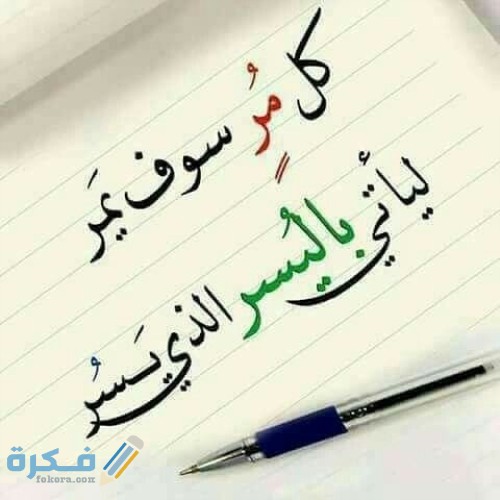 كل مُرٍ سوف يمَر
ليأتي باليُسر الذي يَسُر
فكرة
fekera.com